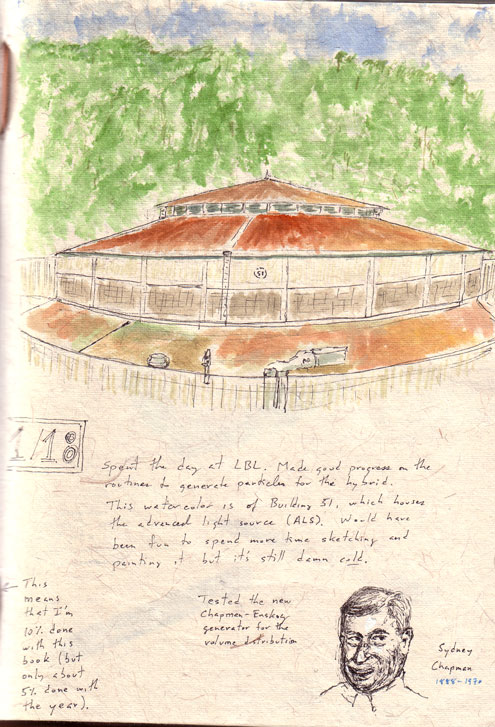 51
1/18
Spent the day at LBL. Made good progress on the
routines to generate particles for the hybrid.
This watercolor is of Building 51, which houses
the advanced light source (ALS). Would have
been fun to spend more time sketching and
painting it but it's still damn cold.
← This
means
that I'm
10% done
with this
book (but
only about
5% done with
the year).
Tested the new
Chapman-Enskog
generator for the
volume distribution
Sydney
Chapman
1888-1970